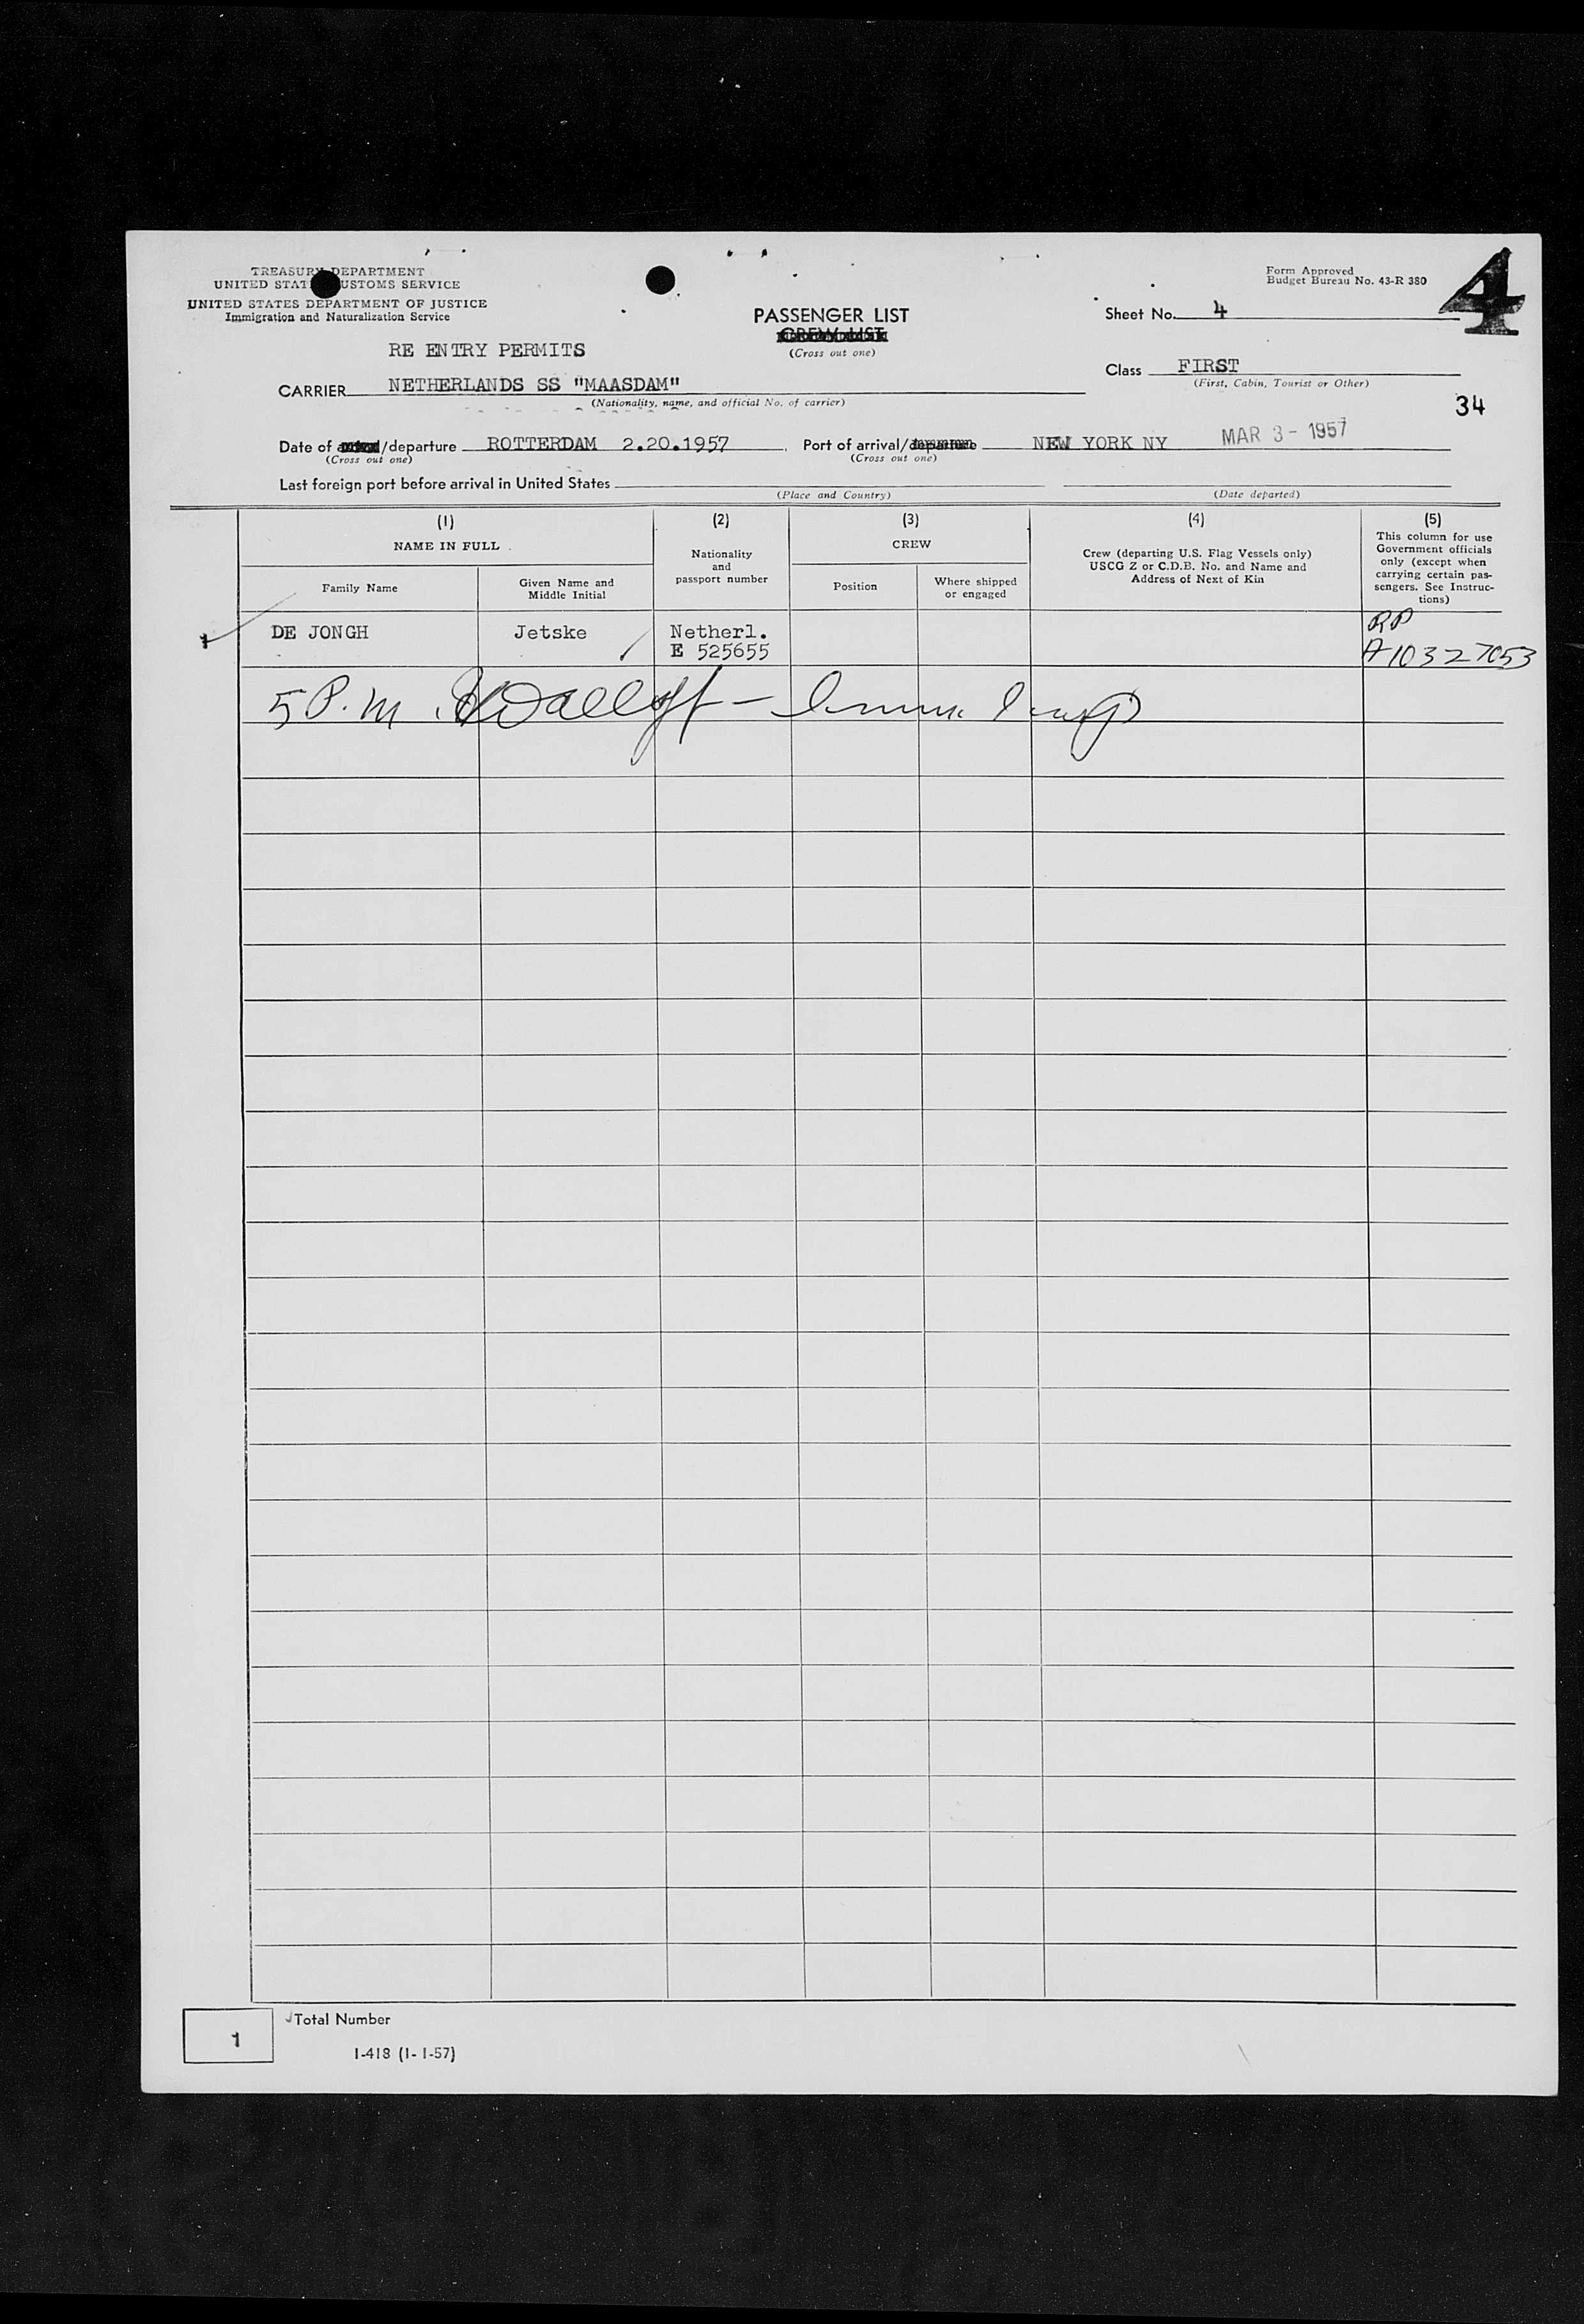 TREASURY DEPARTMENT
UNITED STAT USTOMS SERVICE
UNITED STATES DEPARTMENT OF JUSTICE
Immigration and Naturalization Service
Form Approved
Budget Bureau No. 43-R 380
4
PASSENGER LIST
CREW LIST
(Cross out one)
Sheet No. 4
RE ENTRY PERMITS
CARRIER NETHERLANDS SS "MAASDAM"
(Nationality, name, and official No. of carrier)
Class FIRST
(First, Cabin, Tourist or Other)
34
Date of /departure ROTTERDAM 2.20.1957
(Cross out one)
Port of arrival/departure NEW YORK NY MAR 3 - 1957
(Cross out one)
Last foreign port before arrival in United States
(Place and Country)
(Date departed)
(1)
NAME IN FULL
Family Name
Given Name and
Middle Initial
(2)
Nationality
and
passport number
(3)
CREW
Position
Where shipped
or engaged
(4)
Crew (departing U.S. Flag Vessels only)
USCG Z or C.D.B. No. and Name and
Address of Next of Kin
(5)
This column for use
Government officials
only (except when
carrying certain pas-
sengers. See Instruc-
tions)
1 DE JONGH Jetske Netherl. RP
E 525655 A10327053
5 P.M.
1
Total Number
I-418 (1-1-57)